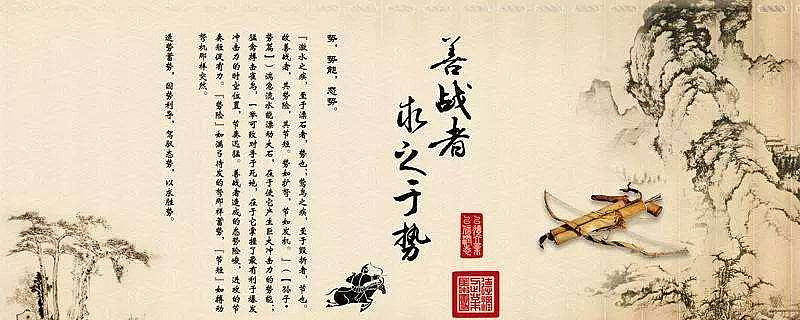 善战者
求之于势
势，势能，态势。
「激水之疾，至于漂石者，势也；鸷鸟之疾，至于毁折者，节也。
故善战者，其势险，其节短。势如扩弩，节如发机。」（【孙子·
势篇】）湍急流水能漂动大石，在于使它产生巨大冲击力的势能；
猛禽搏击雀鸟，一举可致对手于死地，在于它掌握了最有利于爆发
冲击力的时空位置，节奏迅猛。善战者造成的态势险峻，进攻的节
奏短促有力。「势险」如满弓待发的弩那样蓄势，「节短」如搏动
弩机那样突然。
造势蓄势，因势利导，驾驭态势，以求胜势。